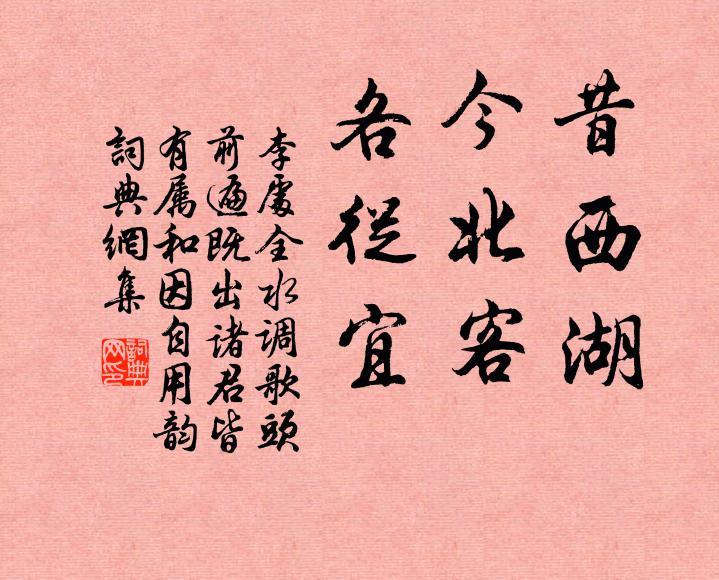 昔西湖
今北客
各從宜
李處全水调歌頭
前遍既出諸君皆
有属和因自用韵
詞典網集
詞典網印